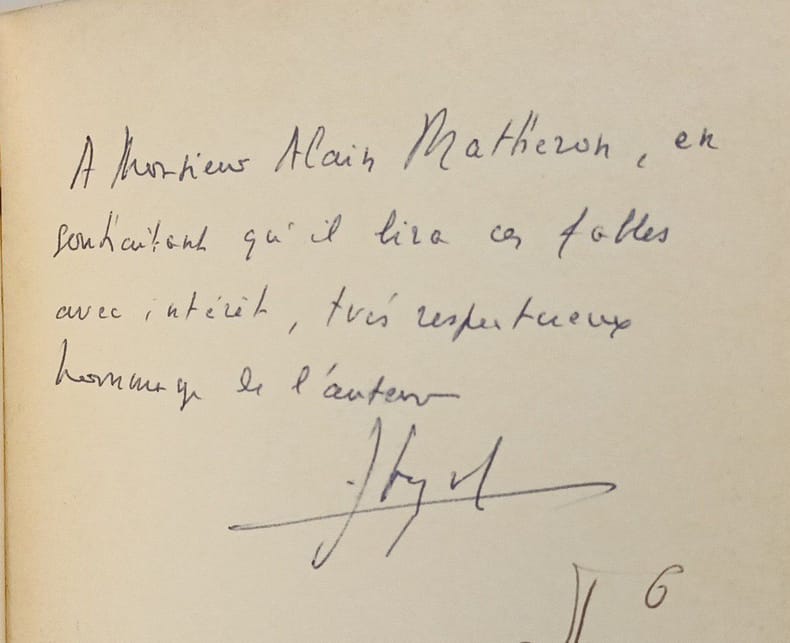 A Monsieur Alain Mathéron, en
souhaitant qu'il lira ces fables
avec intérêt, très respectueux
hommage de l'auteur
6